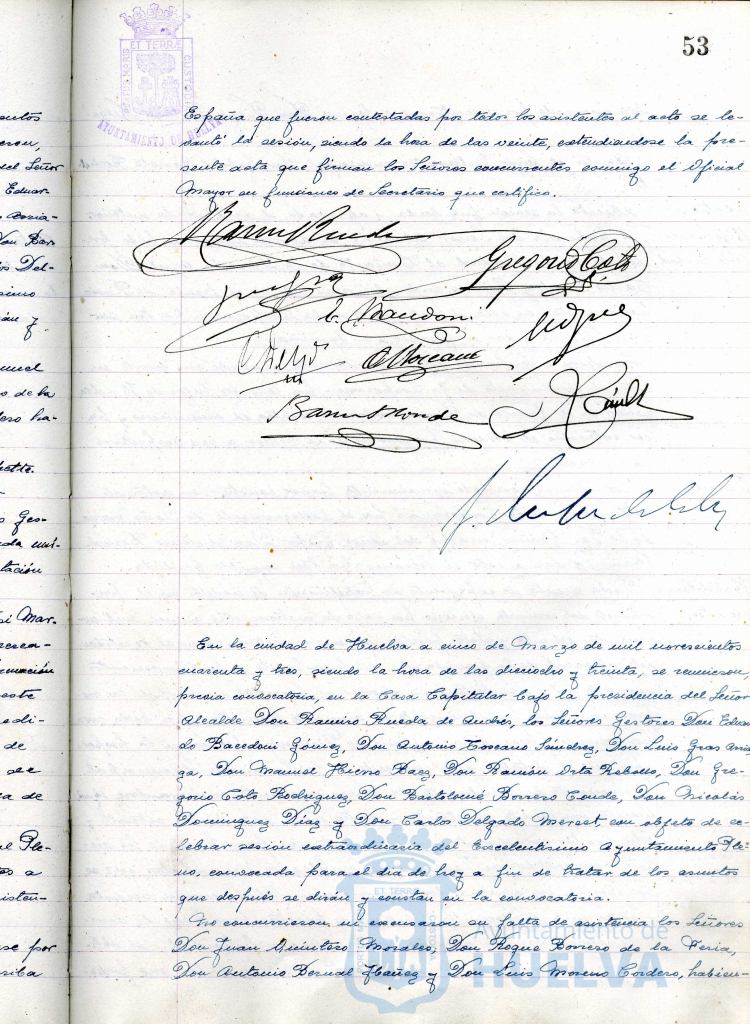 53
PORTUS MARIS ET TERRAE CUSTODIA
AYUNTAMIENTO DE HUELVA
España que fueron contestadas por todos los asistentes al acto se le-
vantó la sesión, siendo la hora de las veinte, extendiendose la pre-
sente acta que firman los Señores concurrentes conmigo el Oficial
Mayor en funciones de Secretario que certifico.
Gregorio Coto
En la ciudad de Huelva a cinco de Marzo de mil novecientos
cuarenta y tres, siendo la hora de las dieciocho y treinta, se reunieron,
previa convocatoria, en la Casa Capitular bajo la presidencia del Señor
Alcalde Don Ramiro Rueda de Andrés, los Señores Gestores Don Eduar
do Bacedoni Gómez, Don Antonio Toscano Sánchez, Don Luis Gras Arria
ga, Don Manuel Hierro Baez, Don Ramón Orta Rebollo, Don Gre-
gorio Coto Rodriguez, Don Bartolomé Borrero Conde, Don Nicolás
Dominguez Díaz y Don Carlos Delgado Merset, con objeto de ce-
lebrar sesión extraordinaria del Excelentisimo Ayuntamiento Ple-
no, convocada para el dia de hoy a fin de tratar de los asuntos
que después se dirán y constan en la convocatoria.
No concurrieron, ni excusaron su falta de asistencia los Señores
Don Juan Quintero Morales, Don Roque Borrero de la Feria,
Don Antonio Bernal Ibañez y Don Luis Moreno Cordero, habien-
Ayuntamiento de
HUELVA